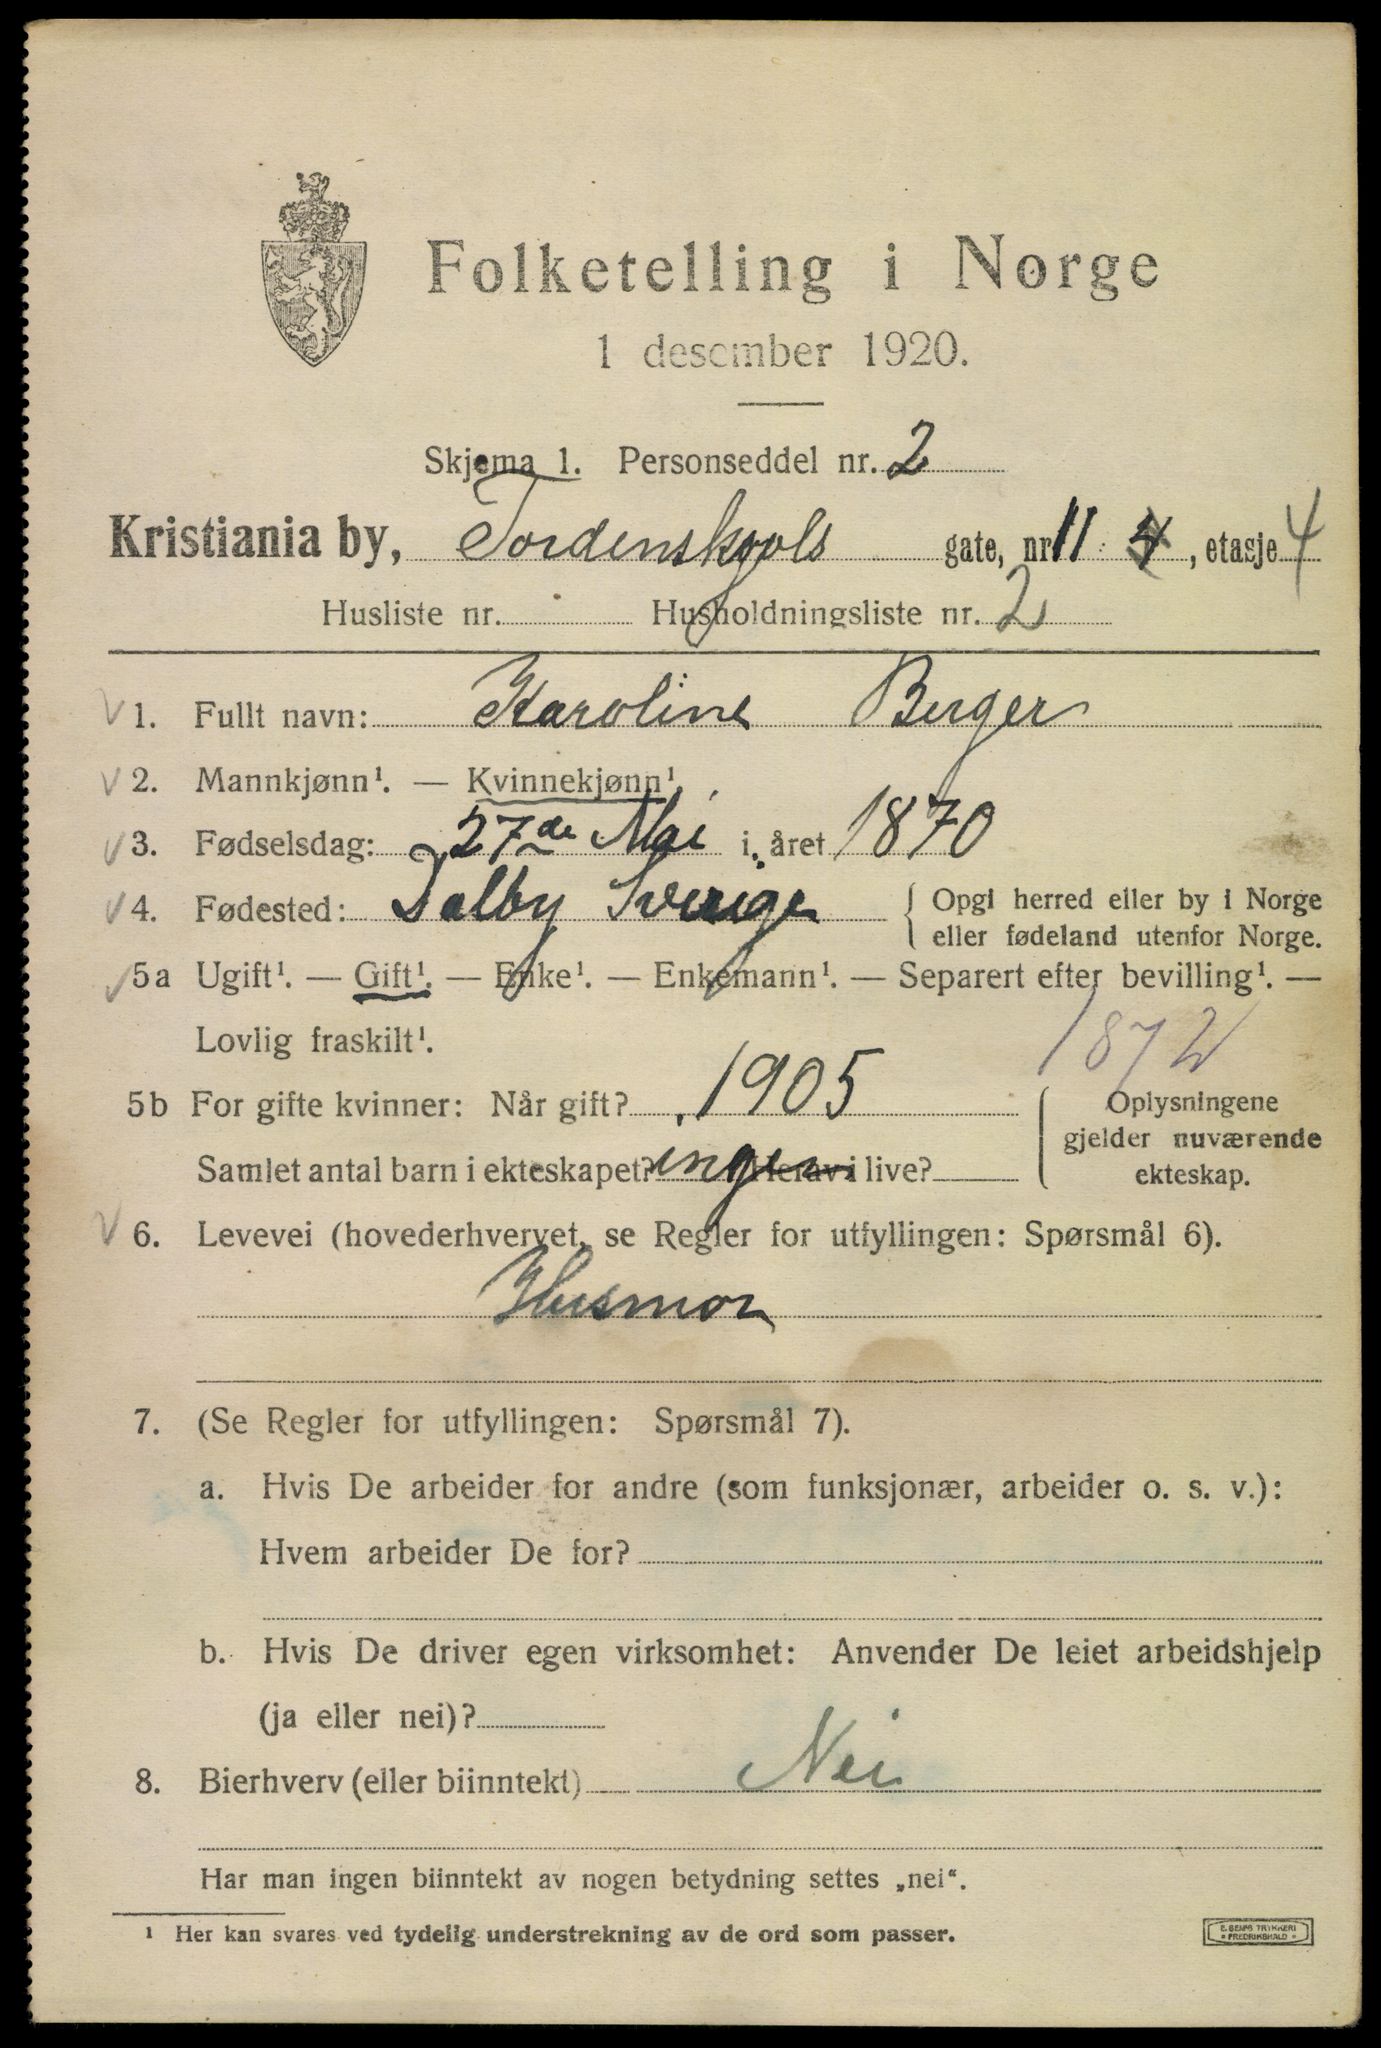 Folketelling i Norge
1 desember 1920.
Skjema 1. Personseddel nr. 2
Kristiania by, Tordenskjols gate, nr 11 4, etasje 4
Husliste nr. Husholdningsliste nr. 2
V 1. Fullt navn: Karoline Berger
V 2. Mannkjønn¹. — Kvinnekjønn¹.
V 3. Fødselsdag: 27de Mai i året 1870
V 4. Fødested: Dalby Sverige { Opgi herred eller by i Norge
eller fødeland utenfor Norge.
V 5a Ugift¹. — Gift¹. — Enke¹. — Enkemann¹. — Separert efter bevilling¹. —
Lovlig fraskilt¹. 1872
5b For gifte kvinner: Når gift? 1905 { Oplysningene
gjelder nuværende
Samlet antal barn i ekteskapet? ingen Herav i live? ekteskap.
V 6. Levevei (hovederhvervet, se Regler for utfyllingen: Spørsmål 6).
Husmor
7. (Se Regler for utfyllingen: Spørsmål 7).
a. Hvis De arbeider for andre (som funksjonær, arbeider o. s. v.):
Hvem arbeider De for?
b. Hvis De driver egen virksomhet: Anvender De leiet arbeidshjelp
(ja eller nei)?
8. Bierhverv (eller biinntekt) Nei
Har man ingen biinntekt av nogen betydning settes „nei“.
¹ Her kan svares ved tydelig understrekning av de ord som passer.
E. SEMS TRYKKERI
FREDRIKSHALD